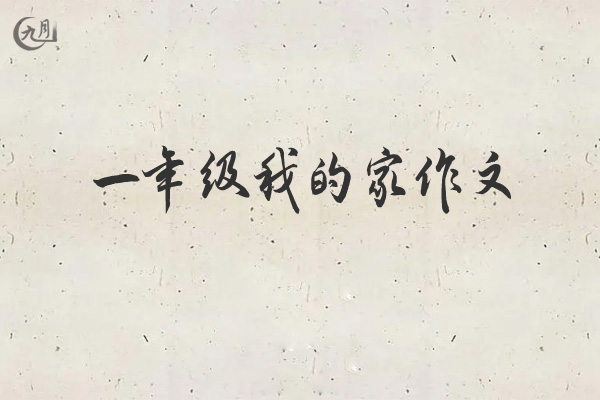 九月
一年级我的家作文